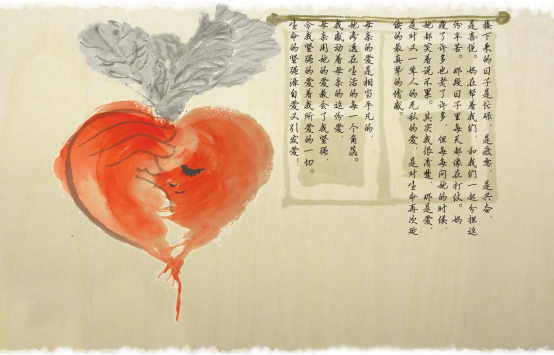 接下来的日子是忙碌，是感恩，是兴奋，
是喜悦。妈在帮着我们，和我们一起分担这
份辛苦。那段日子里每天都像在打仗。妈
瘦了许多也老了许多，但每每问她的时候，
她都笑着说不累。其实我很清楚，那是爱，
是对又一辈人的无私的爱，是对生命再次延
续的最真挚的情感。
母亲的爱是相当平凡的，
她渗透在生活的每一个角落。
我感动着母亲的这份爱，
母亲用她的爱教会了我坚强，
令我坚强的爱着我所爱的一切。
生命的坚强源自爱又引发爱！